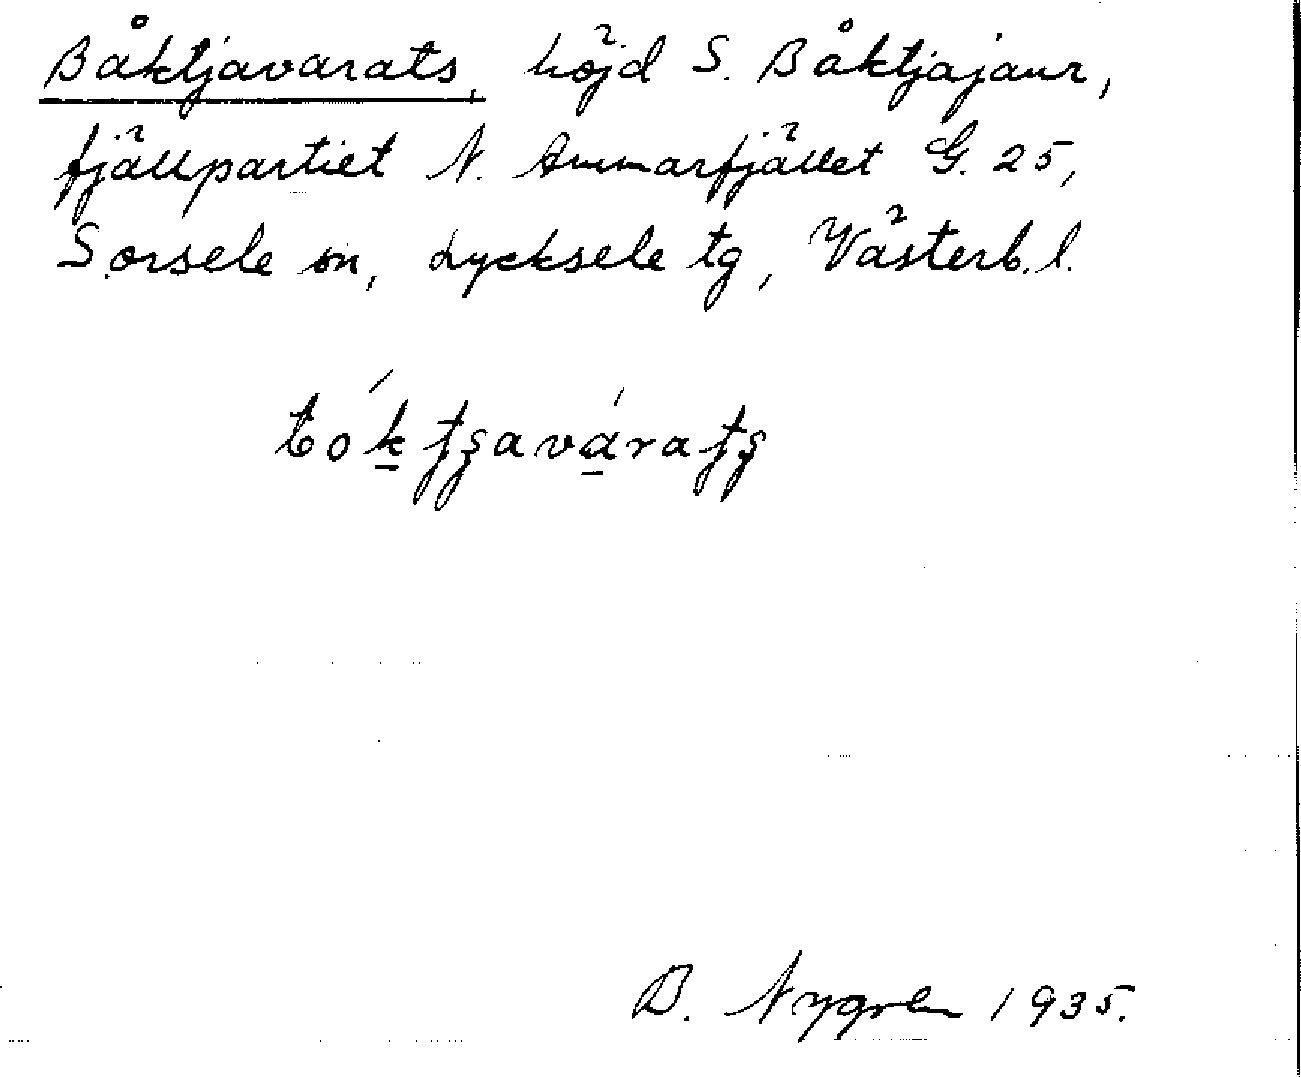 Båktjavarats, höjd S. Båktjajaur,
fjällpartiet N. Ammarfjället G. 25,
Sorsele sn, Lycksele tg, Västerb. l.
B. Nygren 1935.